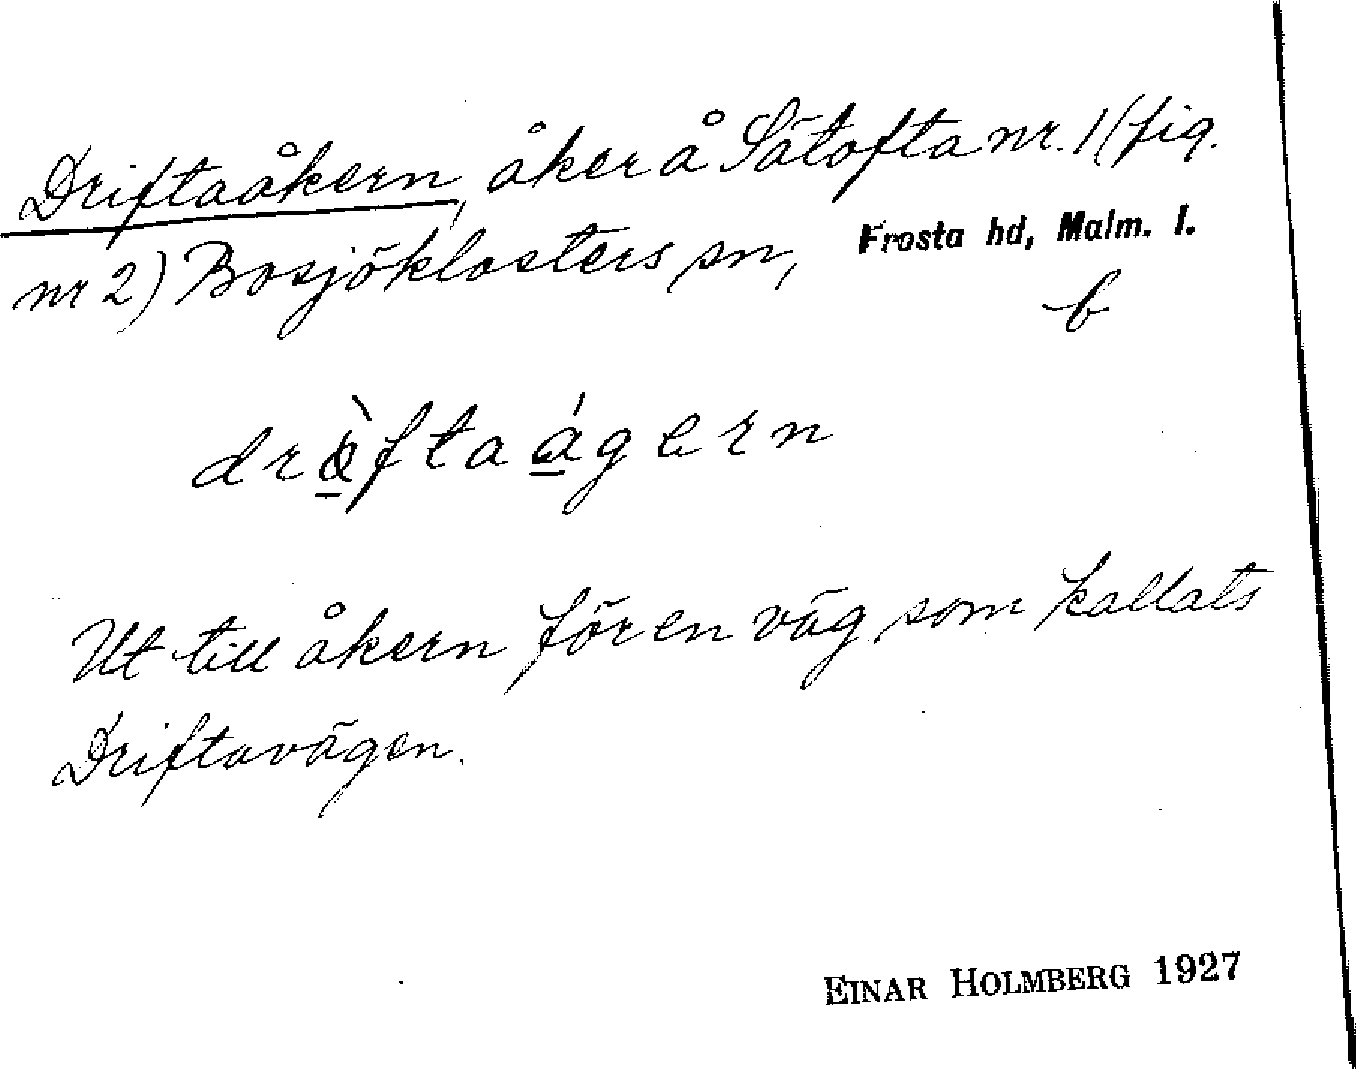 Driftaåkern, åker å Sätofta nr. 1 (fig.
nr 2) Bosjöklosters sn, Frosta hd, Malm. l.
b
dræ̀ftaágern
Ut till åkern för en väg som kallats
Driftavägen.
EINAR HOLMBERG 1927